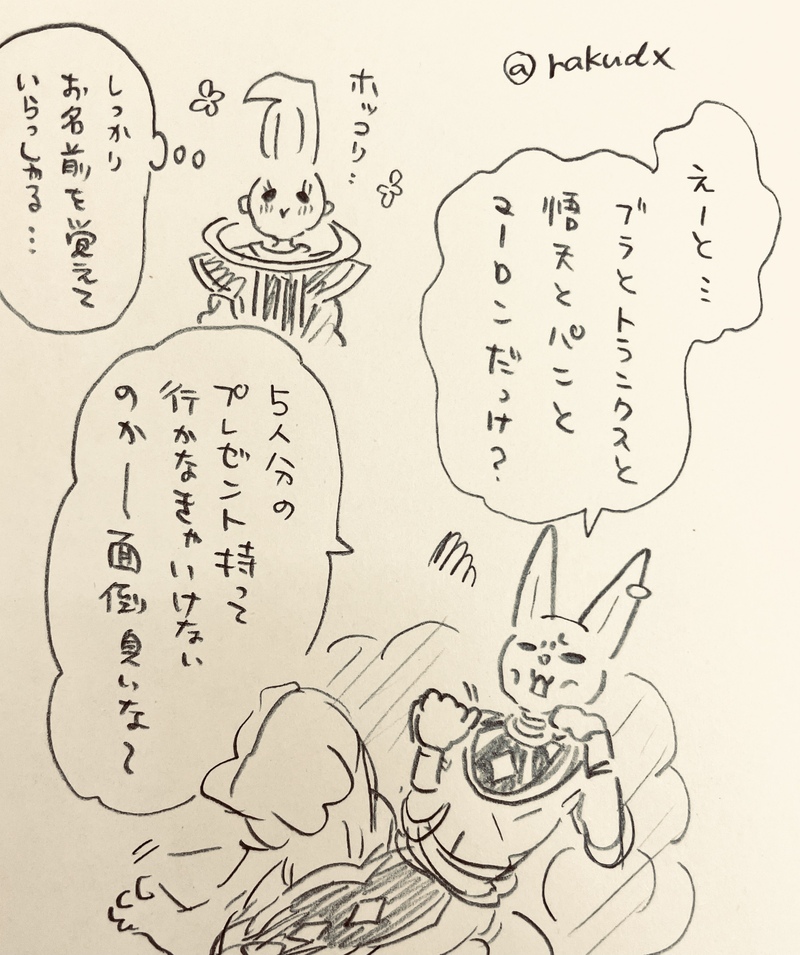 @rakudx
えーと…
ブラとトランクスと
悟天とパンと
マーロンだっけ?
ホッコリ…
しっかり
お名前を覚えて
いらっしゃる…
5人分の
プレゼント持って
行かなきゃいけない
のかー面倒臭いな〜